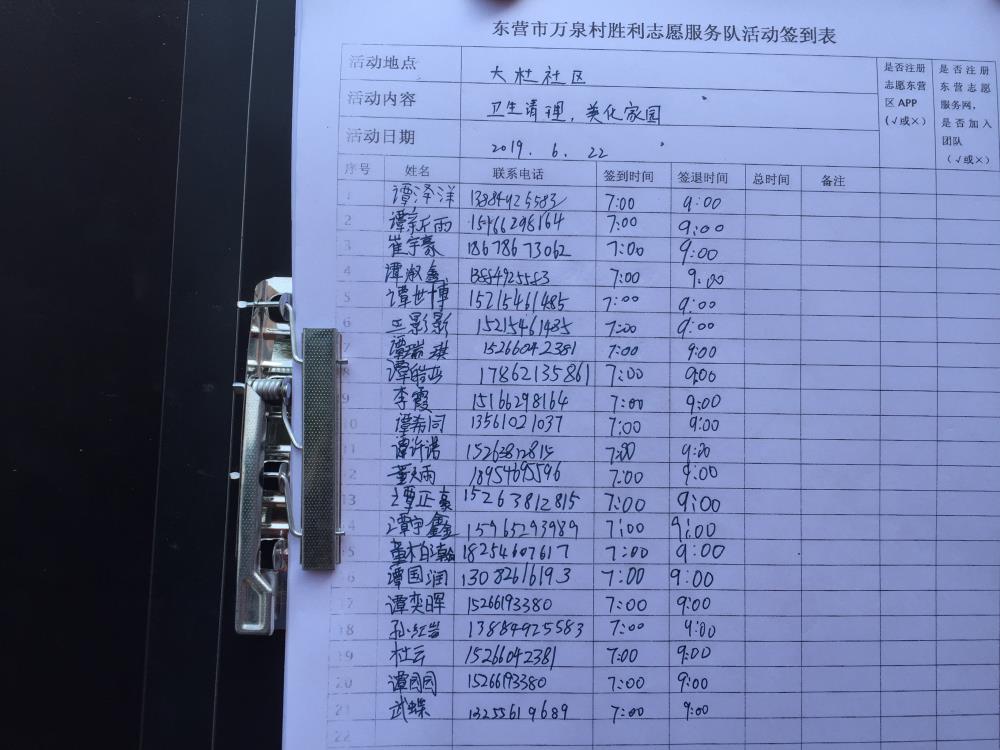 东营市万泉村胜利志愿服务队活动签到表
活动地点 大杜社区 是否注册志愿东营区APP(√或×) 是否注册东营志愿服务网，是否加入团队(√或×)
活动内容 卫生清理，美化家园
活动日期 2019.6.22
序号 姓名 联系电话 签到时间 签退时间 总时间 备注
1 谭泽洋 13884925583 7:00 9:00
2 谭新雨 15166298164 7:00 9:00
3 崔宇豪 18678673062 7:00 9:00
4 谭淑鑫 13884925583 7:00 9:00
5 谭世博 15215461485 7:00 9:00
6 王影影 15215461485 7:00 9:00
7 谭瑞琪 15266042381 7:00 9:00
8 谭皓 17862135861 7:00 9:00
9 李霞 15166298164 7:00 9:00
10 谭希同 13561021037 7:00 9:00
11 谭许诺 15263812815 7:00 9:00
12 董雨 18954695596 7:00 9:00
13 谭正豪 15263812815 7:00 9:00
14 谭宇鑫 15965293989 7:00 9:00
15 董柏瀚 18254607617 7:00 9:00
16 谭国润 13082616193 7:00 9:00
17 谭奕晖 15266193380 7:00 9:00
18 孙红岩 13884925583 7:00 9:00
19 杜云 15266042381 7:00 9:00
20 谭园园 15266193380 7:00 9:00
21 武蝶 13255619689 7:00 9:00
22